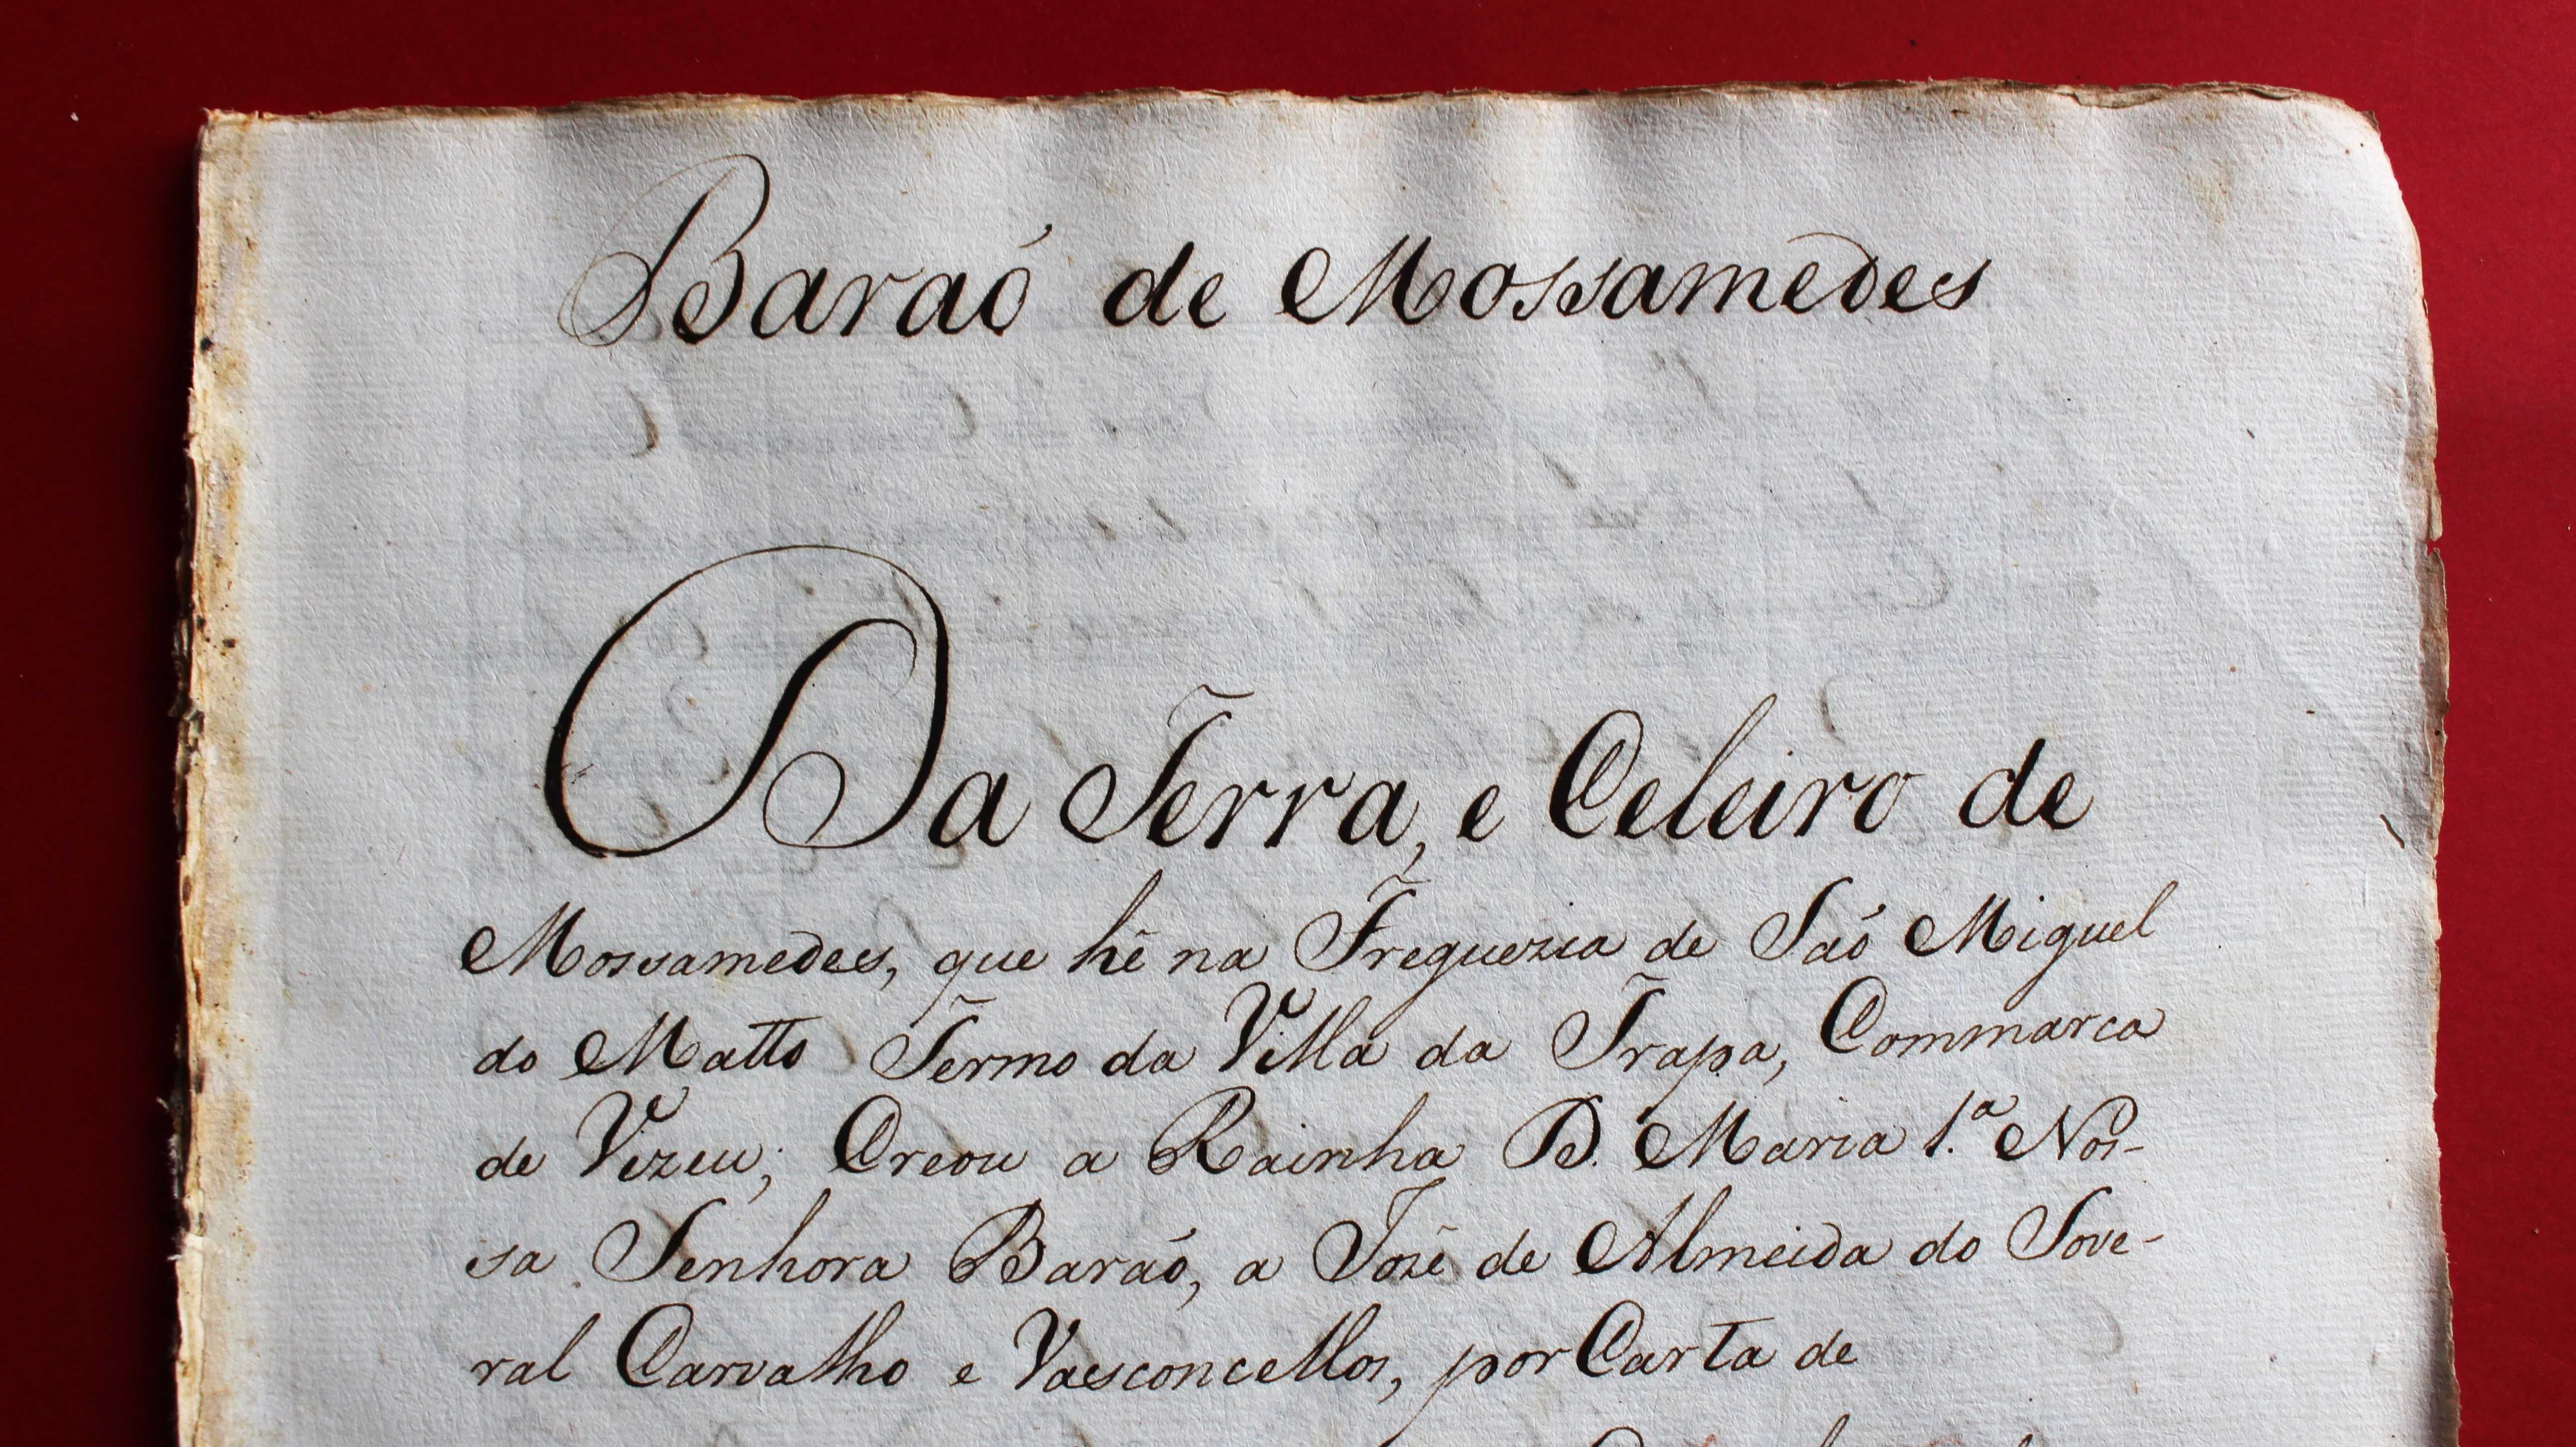 Baraó de Mossamedes
Da Terra, e Celeiro de
Mossamedes, que hé na Freguezia de Saó Miguel
do Matto Termo da Villa da Trapa, Commarca
de Vizeu; Creou a Rainha D. Maria 1.ª Nos-
sa Senhora Baraó, a José de Almeida do Sove-
ral Carvalho e Vasconcellos, por Carta de